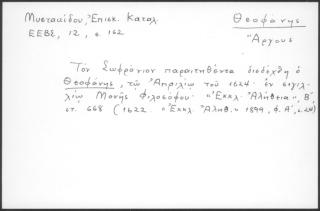 Μυστακίδου, Ἐπισκ. Καταλ.
ΕΕΒΣ, 12, σ. 162
Θεοφάνης
Ἄργους
Τὸν Σωφρόνιον παραιτηθέντα διεδέχθη ὁ
Θεοφάνης, τῷ Ἀπριλίῳ τοῦ 1624 ἐν σιγιλ-
λίῳ Μονῆς Φιλοσόφου. "Ἐκκλ. Ἀλήθεια", Β΄,
στ. 668 (1622. "Ἐκκλ. Ἀλήθ." 1899, φ. Α΄,